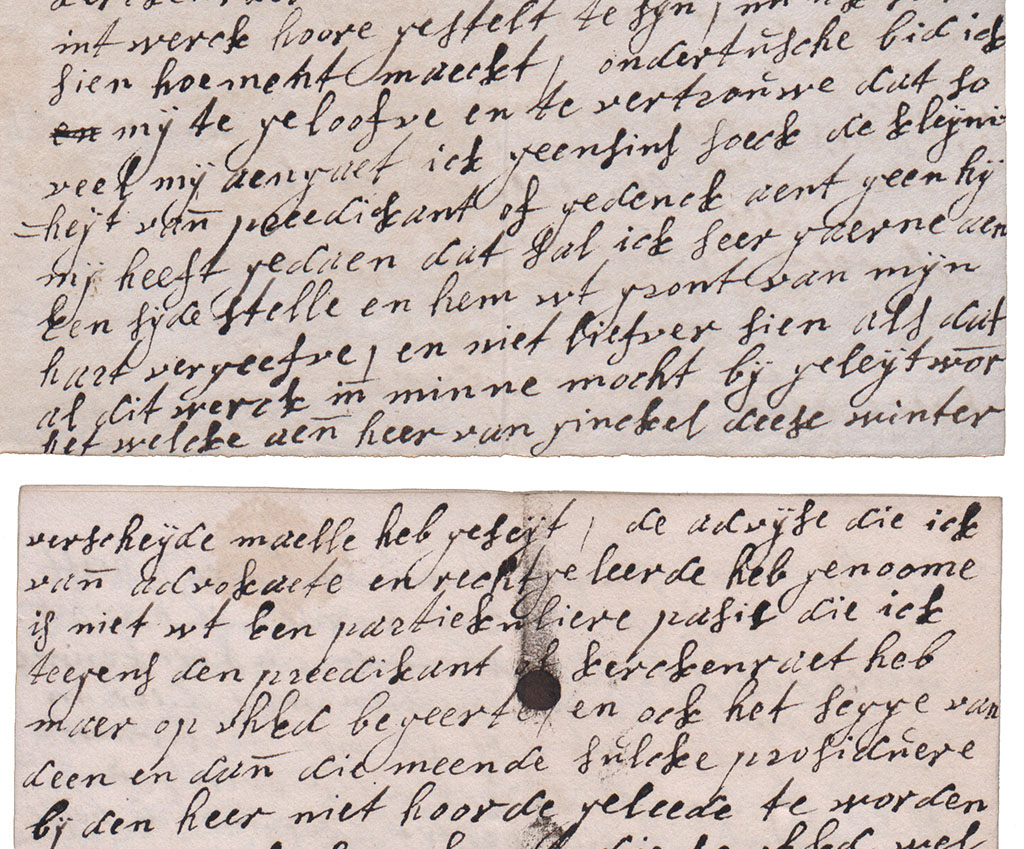 int werck hoore gestelt te syn,
sien hoement maeckt, ondertusche bid ick
en mij te geloofve en te vertrouwe dat so
veel mij aengaet ick geensins soeck de kleijni
=heijt van preedickant of gedenck aent geen hij
mij heeft gedaen dat sal ick seer gaerne aen
een sijde stelle en hem wt gront van mijn
hart vergeefve, en niet liefver sien als dat
al dit werck in minne mocht bij geleijt wor
het welcke aen heer van ginckel deese winter
verscheijde maelle heb geseijt, de advijse die ick
van advokaete en rechtgeleerde heb genoome
is niet wt een partiekuliere pasie die ick
teegens den preedikant of kerckenraet heb
maer op uhEd begeerte, en ock het segge van
deen en dan die meende sulcke prosiduere
bij den heer niet hoorde geleede te worden
uhEd wel